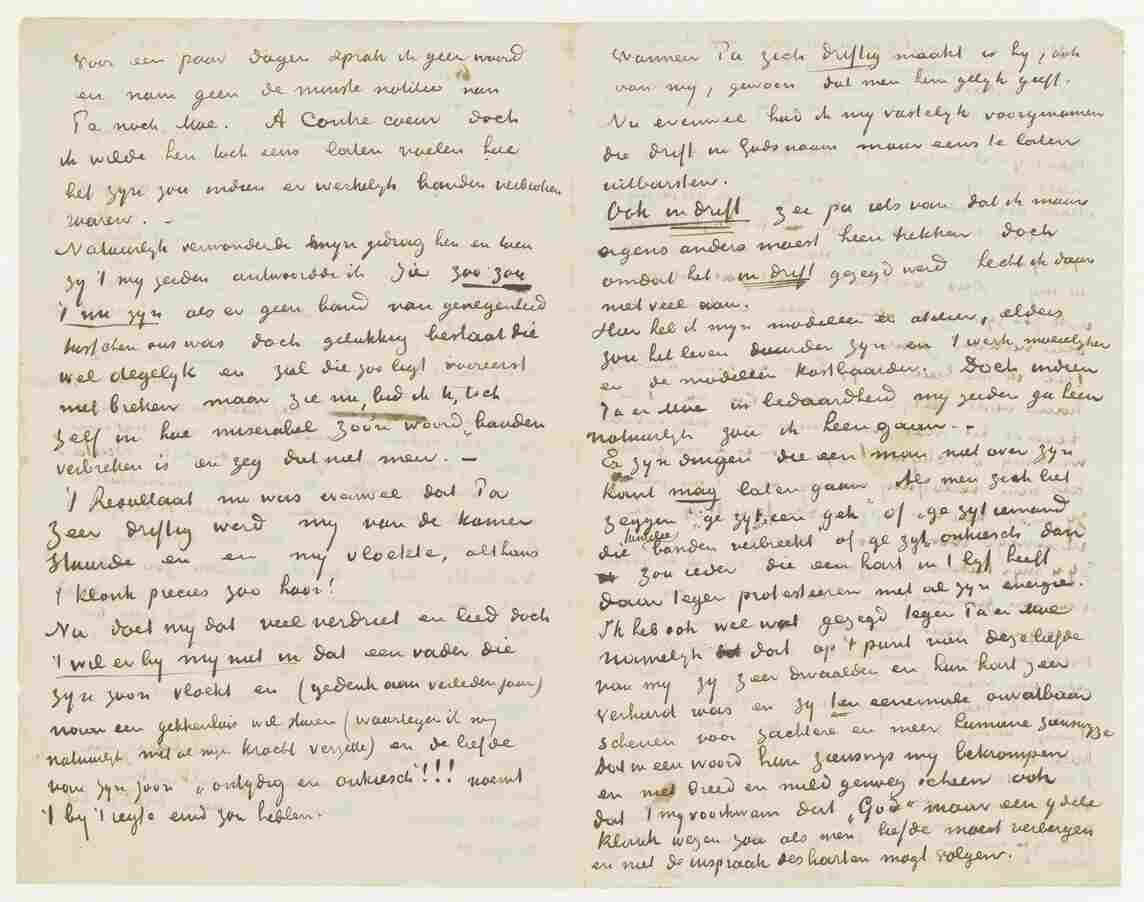 voor een paar dagen sprak ik geen woord
en nam geen de minste notitie van
Pa noch Moe. A Contre coeur doch
ik wilde hen toch eens laten voelen hoe
het zyn zou indien er werkelyk banden verbroken
waren. –
Natuurlyk verwonderde myn gedrag hen en toen
zy 't my zeiden antwoordde ik Zie zoo zou
't nu zyn als er geen band van genegenheid
tusschen ons was doch gelukkig bestaat die
wel degelyk en zal die zoo ligt vooreerst
niet breken maar zie nu, bid ik U, toch
zelf in hoe miserabel zoo'n woord „banden
verbreken is en zeg dat niet meer. –
't Resultaat nu was evenwel dat Pa
zeer driftig werd my van de kamer
stuurde en en my vloekte, althans
't klonk precies zoo hoor!
Nu doet my dat veel verdriet en leed doch
't wil er by my niet in dat een vader die
zyn zoon vloekt en (gedenk aan verleden jaar)
naar een gekkenhuis wil sturen (waartegen ik my
natuurlyk met al myn kracht verzette) en de liefde
van zyn zoon „ontydig en onkiesch"!!! noemt
't by 't regte eind zou hebben.
Wanneer Pa zich driftig maakt is hy, ook
van my, gewoon dat men hem gelyk geeft.
Nu evenwel had ik my vastelyk voorgenomen
die drift in Godsnaam maar eens te laten
uitbarsten.
Ook in drift zei pa iets van dat ik maar
ergens anders moest heen trekken doch
omdat het in drift gezegd werd hecht ik daar
niet veel aan.
Hier heb ik myn modellen en atelier, elders
zou het leven duurder zyn en 't werk moeielyker
en de modellen kostbaarder. Doch indien
Pa en Moe in bedaardheid my zeiden ga heen
natuurlyk zou ik heengaan. –
Er zyn dingen die een man niet over zyn
kant mag laten gaan Als men zich het
zeggen „ge zyt een gek of „ge zyt iemand
die familie banden verbreekt of ge zyt onkiesch dan
zou ieder die een hart in 't lyf heeft
daar tegen protesteeren met al zyn energie.
Ik heb ook wel wat gezegd tegen Pa en Moe
namelyk dat op 't punt van deze liefde
van my zy zeer dwaalden en hun hart zeer
verhard was en zy ten eenemale onvatbaar
schenen voor zachtere en meer humane zienswyze
Dat in een woord hun zienswys my bekrompen
en niet breed en mild genoeg scheen ook
dat 't my voorkwam dat „God" maar een ydele
klank wezen zou als men liefde moest verbergen
en niet de inspraak des harten mogt volgen.